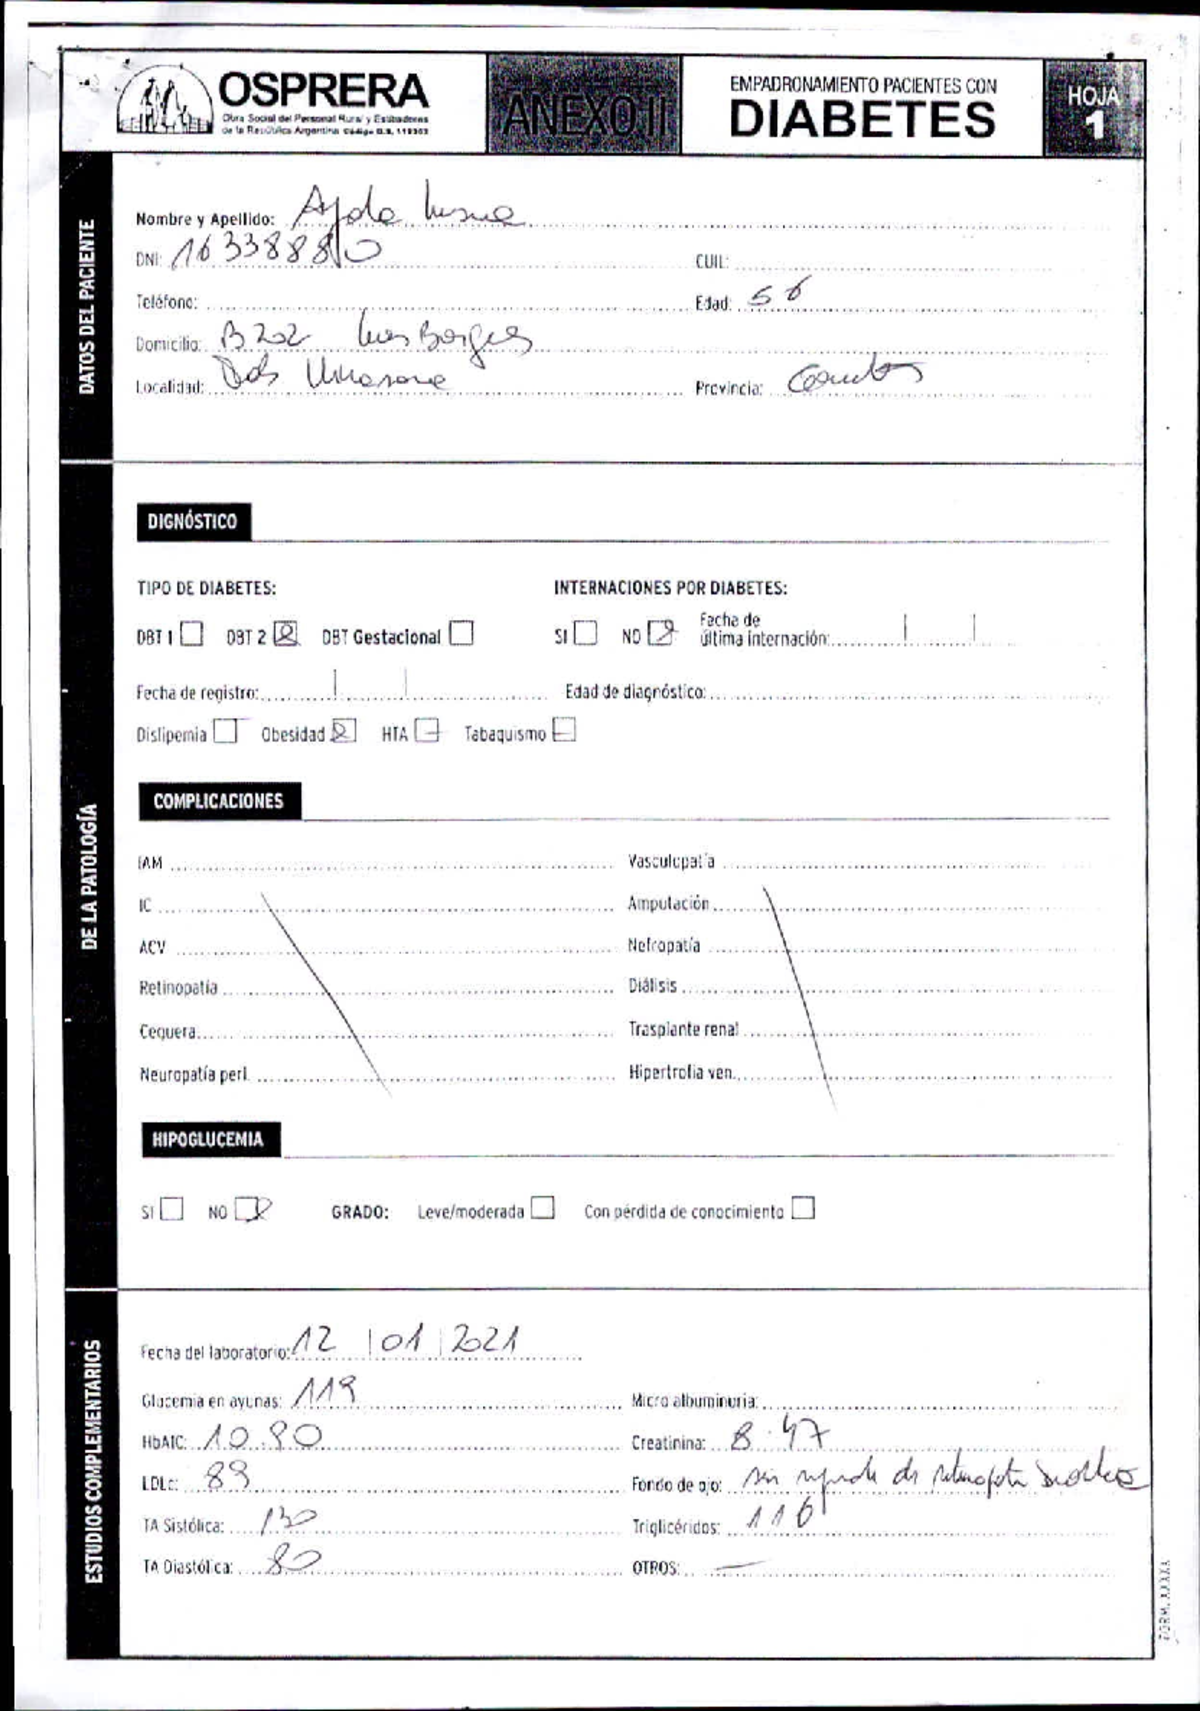 OSPRERA
Obra Social del Personal Rural y Estibadores
de la República Argentina Código O.S. 119302
ANEXO II
EMPADRONAMIENTO PACIENTES CON
DIABETES
HOJA
1
DATOS DEL PACIENTE
Nombre y Apellido: Ayala
DNI: 16338880 CUIL:
Teléfono: Edad: 56
Domicilio: B 202 Borges
Localidad: Provincia:
DE LA PATOLOGÍA
DIGNÓSTICO
TIPO DE DIABETES: INTERNACIONES POR DIABETES:
DBT 1 DBT 2 DBT Gestacional SI NO Fecha de
última internación:
Fecha de registro: Edad de diagnóstico:
Dislipemia Obesidad HTA Tabaquismo
COMPLICACIONES
IAM Vasculopatía
IC Amputación
ACV Nefropatía
Retinopatía Diálisis
Ceguera Trasplante renal
Neuropatía peri. Hipertrofia ven.
HIPOGLUCEMIA
SI NO GRADO: Leve/moderada Con pérdida de conocimiento
ESTUDIOS COMPLEMENTARIOS
Fecha del laboratorio: 12 | 01 | 2021
Glucemia en ayunas: 119 Micro albuminuria:
HbA1C: 10.90 Creatinina: 8.47
LDLc: 89 Fondo de ojo: sin de
TA Sistólica: 130 Triglicéridos: 116
TA Diastólica: 80 OTROS: —
FORM. XXXXX